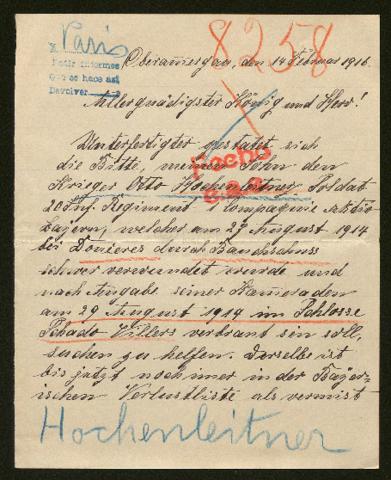 8258
Paris
Pedir informes
Que se hace así
Devolver
Oberammergau, den 14 Februar 1916.
Allergnädigster König und Herr!
Unterfertigter gestatet sich
die Bitte, meinen Sohn den
Krieger Otto Hochenleitner, Soldat
20 Inf. Regiment 4 Compagnie
Bayern, welcher am 27 August 1914
bei Douxeres durch Bauchschuss
schwer verwundet wurde und
nach Angabe seiner Kameraden
am 29 August 1914 im Schlosse
Villers verbrant sein soll,
suchen zu helfen. Derselbe ist
bis jetzt noch imer in der Bayer-
ischen Verlustliste als vermist
Hochenleitner